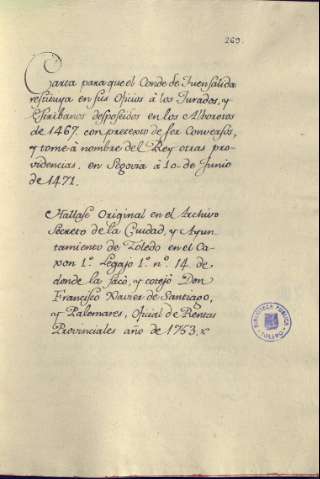 269.
Carta para que el Conde de Fuensalida
restituya en sus Oficios à los Jurados, y
Escribanos desposeidos en los Alborotos
de 1467. con pretexto de ser Conversos,
y tome à nombre del Rey otras pro-
videncias. en Segovia à 10 de Junio
de 1471.
Hallase Original en el Archivo
Secreto de la Ciudad, y Ayun-
tamiento de Toledo en el Ca-
xon 1º. Legajo 1º. nº. 14. de
donde la sacò, y cotejò Don
Francisco Xavier de Santiago,
y Palomares, Oficial de Rentas
Provinciales año de 1753.
BIBLIOTECA PUBLICA
TOLEDO